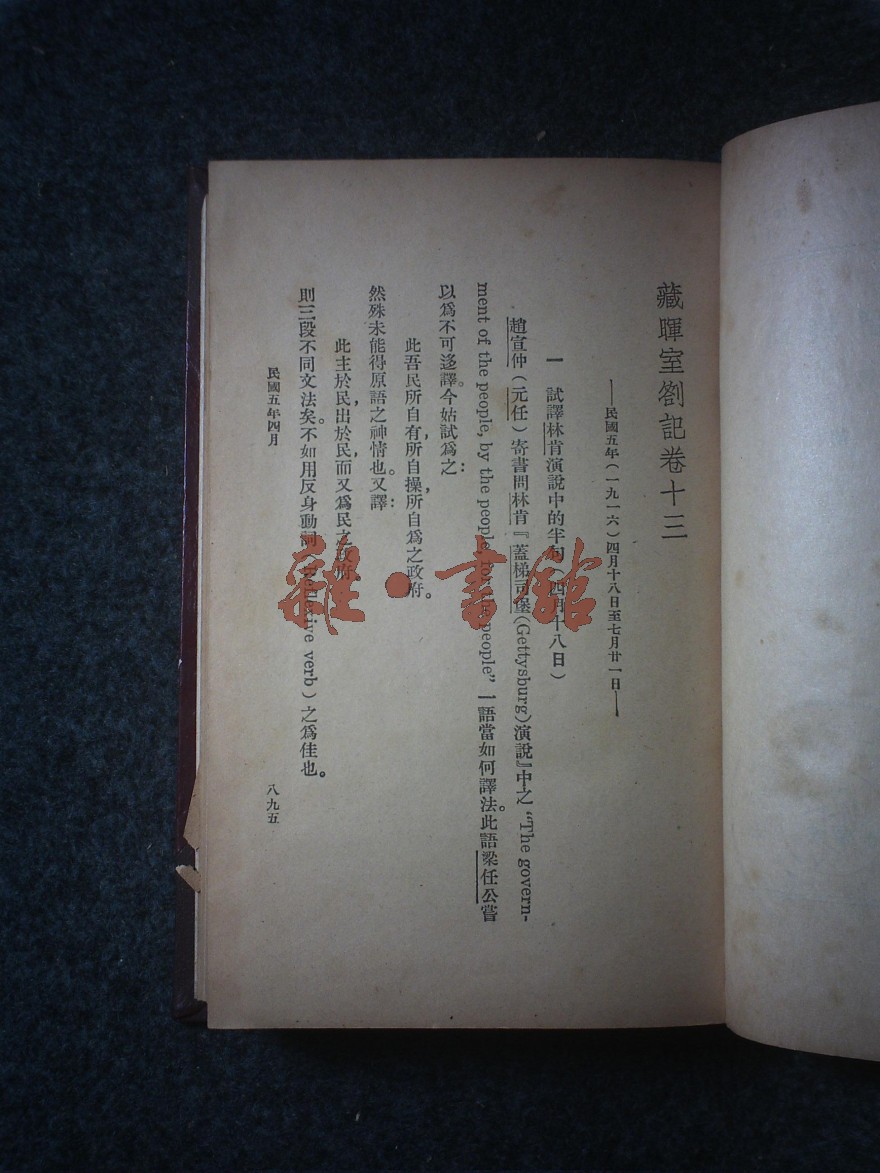 藏暉室劄記卷十三
——民國五年(一九一六)四月十八日至七月廿一日——
一 試譯林肯演說中的半句(四月十八日)
趙宣仲(元任)寄書問林肯『蓋梯司堡(Gettysburg)演說』中之“The govern-
ment of the people, by the people, for the people”一語當如何譯法。此語梁任公嘗
以爲不可迻譯。今姑試爲之:
此吾民所自有,所自操,所自爲之政府。
然殊未能得原語之神情也。又譯:
此主於民,出於民,而又爲民之政府。
則三段不同文法矣。不如用反身動詞(Reflexive verb)之爲佳也。
民國五年四月
八九五
雜·書館